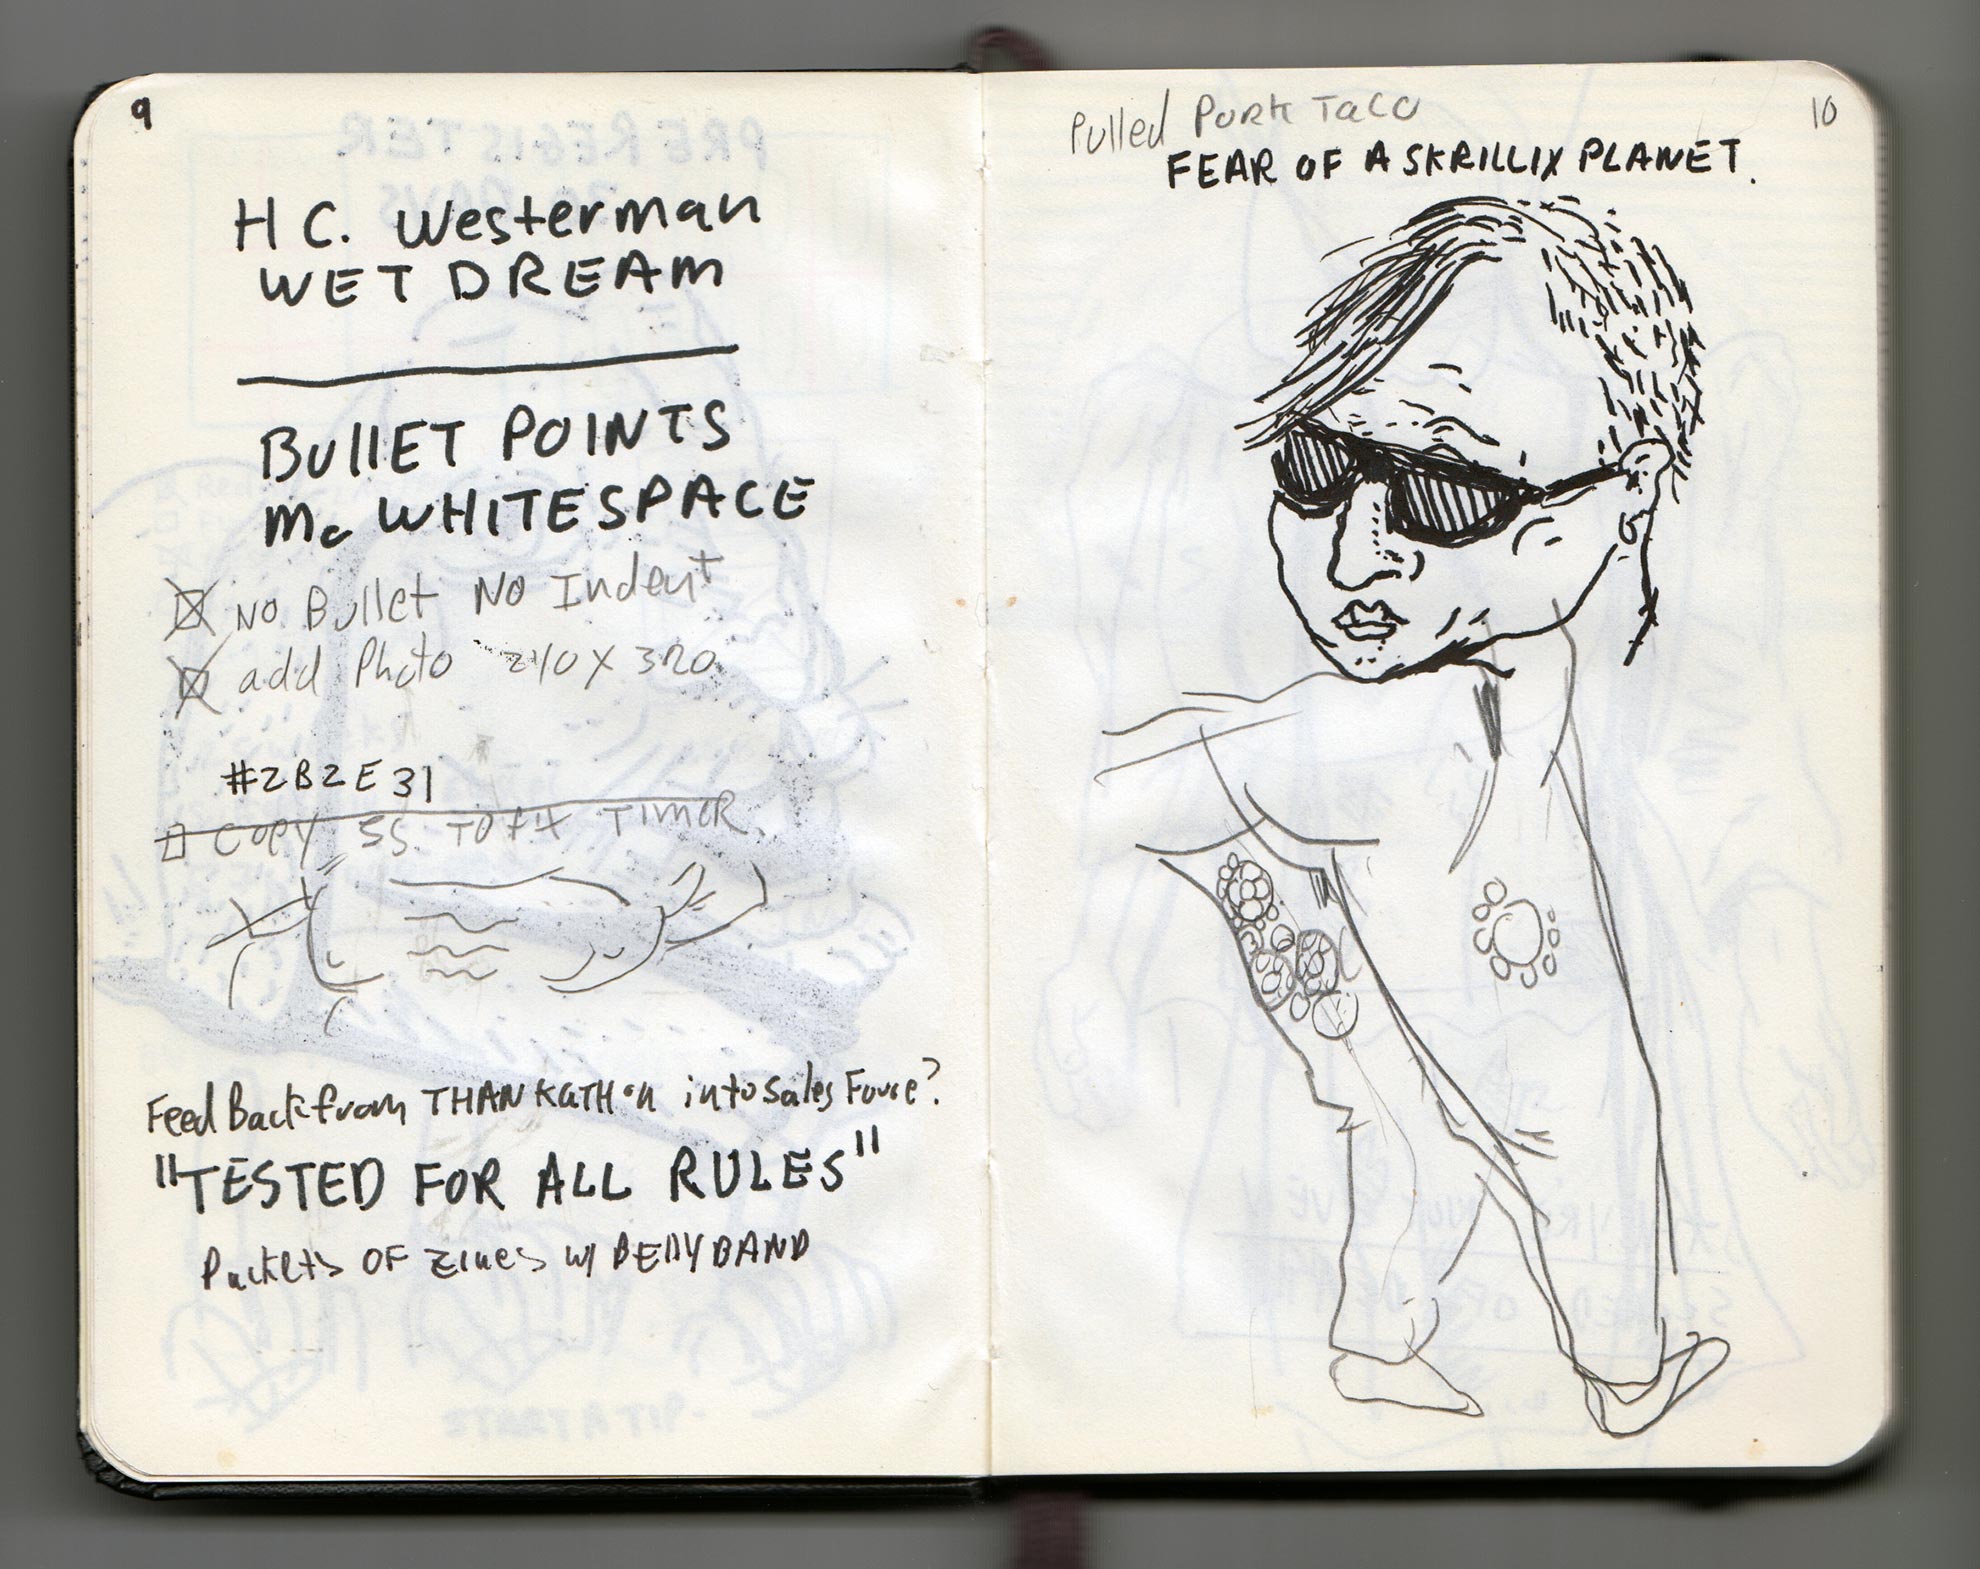 9
H C. Westerman
WET DREAM
BullET POINTS
Mc WHITESPACE
NO Bullet NO Indent
add Photo 240 X 320
#2B2E31
COPY SS TO fit TIMER.
Feed Back from THANKATHON into Sales Force?
"TESTED FOR ALL RULES"
Packets OF Zines w/ BELLYBAND
10
Pulled Pork Taco
FEAR OF A SKRILLIX PLANET.